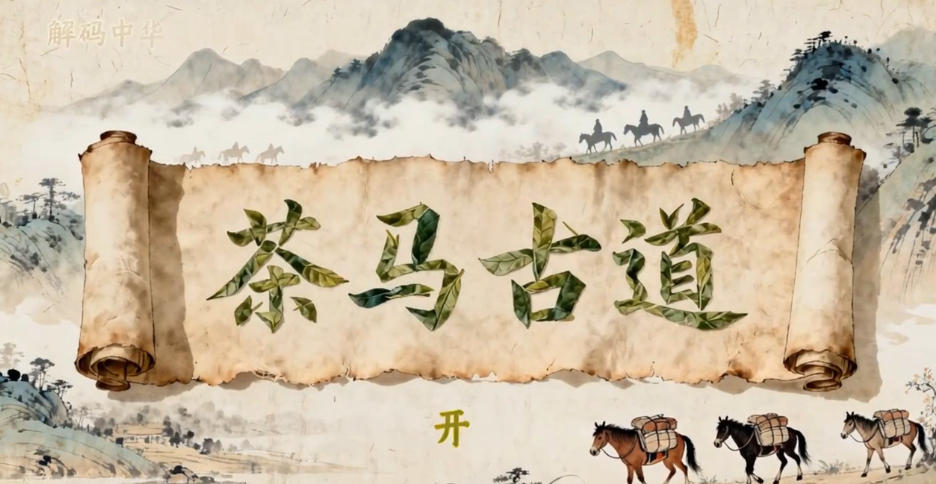 解码中华
茶马古道
开